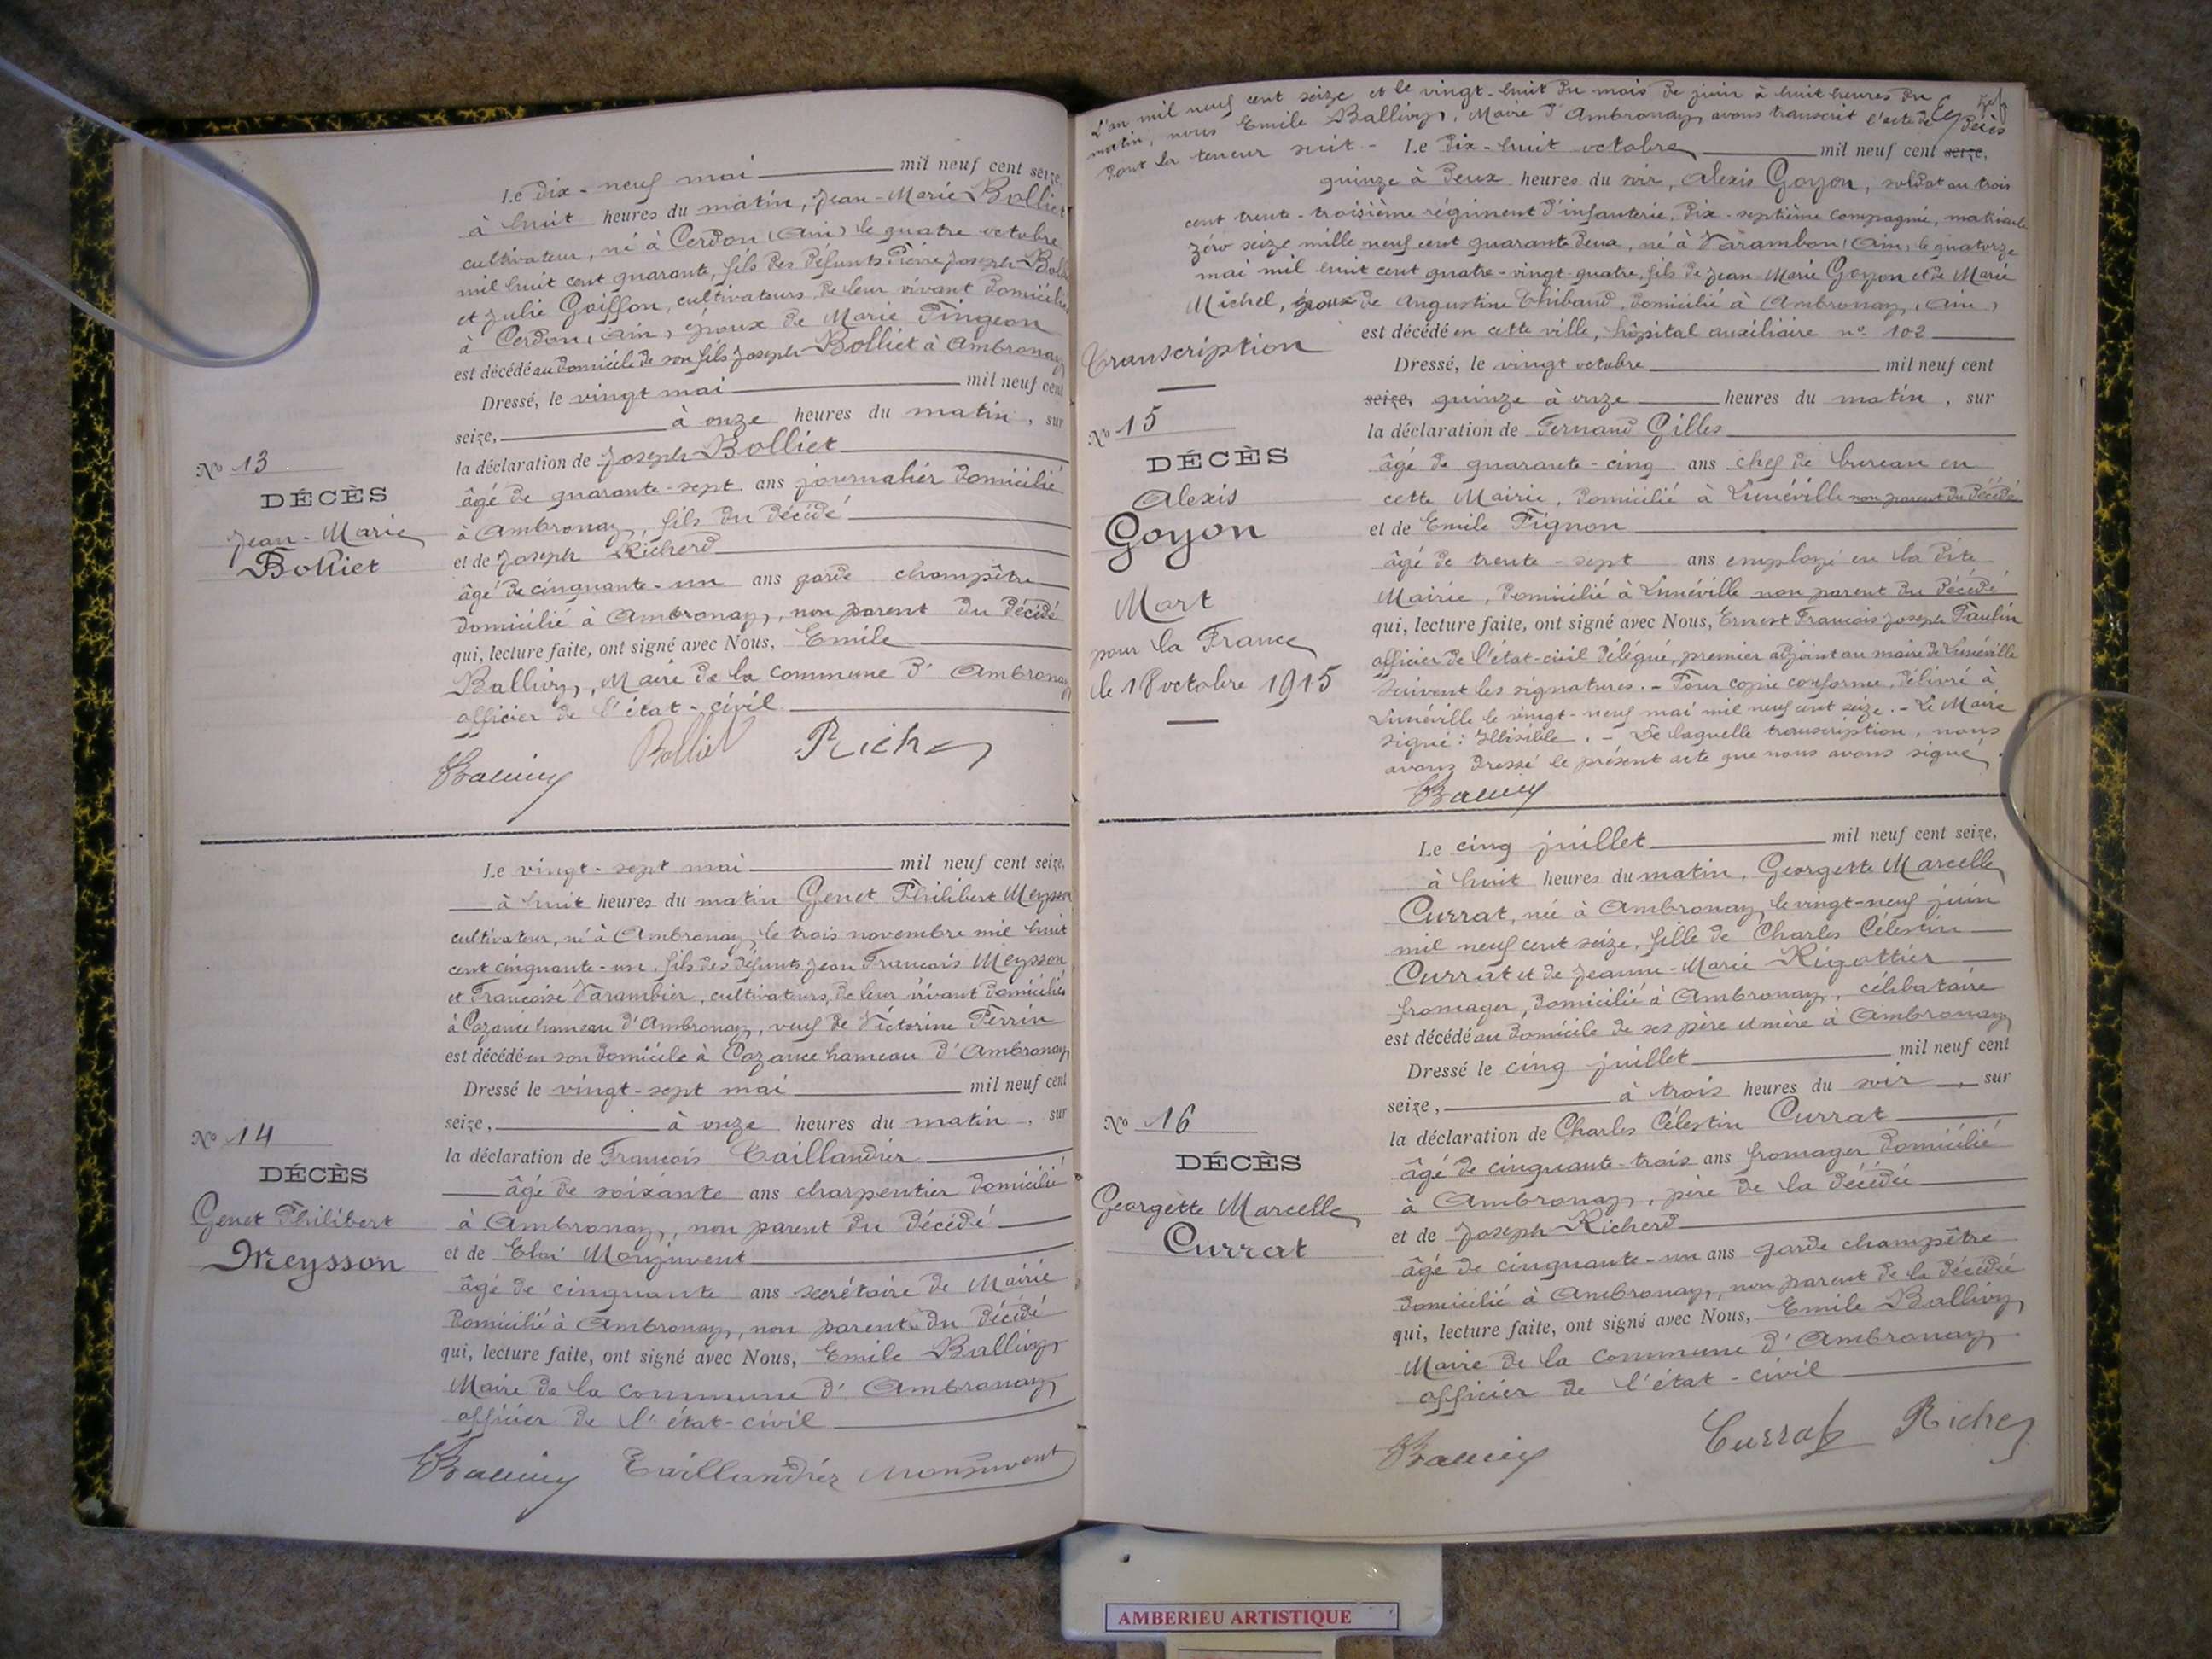 Le dix-neuf mai mil neuf cent seize,
à huit heures du matin, Jean-Marie Bolliet
cultivateur, né à Cerdon (Ain) le quatre octobre
mil huit cent quarante, fils des défunts Pierre Joseph Boll
et Julie Goiffon, cultivateurs, de leur vivant domiciliés
à Cerdon, (Ain), époux de Marie Pingeon
est décédé au domicile de son fils Joseph Bolliet à Ambronay
Dressé, le vingt mai mil neuf cent
seize, à onze heures du matin, sur
la déclaration de Joseph Bolliet
âgé de quarante-sept ans journalier domicilié
à Ambronay, fils du décédé
et de Joseph Richerd
âgé de cinquante-un ans garde champêtre
domicilié à Ambronay, non parent du décédé
qui, lecture faite, ont signé avec Nous, Emile
Ballivy, Maire de la commune d'Ambronay
officier de l'état-civil
Nº 13
DÉCÈS
Jean-Marie
Bolliet
Bolliet Richerd
Le vingt-sept mai mil neuf cent seize,
à huit heures du matin Genet Philibert Meysson
cultivateur, né à Ambronay, le trois novembre mil huit
cent cinquante-un, fils des défunts Jean François Meysson
et Françoise Varambier, cultivateurs, de leur vivant domiciliés
à Cozance hameau d'Ambronay, veuf de Victorine Perrin
est décédé en son domicile à Cozance hameau d'Ambronay
Dressé le vingt-sept mai mil neuf cent
seize, à onze heures du matin, sur
la déclaration de François Taillandier
âgé de soixante ans charpentier domicilié
à Ambronay, non parent du décédé
et de Eloi Monjuvent
âgé de cinquante ans secrétaire de Mairie
domicilié à Ambronay, non parent du décédé
qui, lecture faite, ont signé avec Nous, Emile Ballivy
Maire de la commune d'Ambronay
officier de l'état-civil
Nº 14
DÉCÈS
Genet Philibert
Meysson
Taillandier Monjuvent
L'an mil neuf cent seize et le vingt-huit du mois de juin à huit heures du
matin, nous Emile Ballivy, Maire d'Ambronay, avons transcrit l'acte de décès
dont la teneur suit.- Le dix-huit octobre mil neuf cent seize,
quinze à deux heures du soir, Alexis Goyon, soldat au trois
cent trente-troisième régiment d'infanterie, dix-septième compagnie, matricule
zéro seize mille neuf cent quarante deux, né à Varambon (Ain) le quatorze
mai mil huit cent quatre-vingt-quatre, fils de Jean Marie Goyon et de Marie
Michel, époux de Augustine Thibaud, domicilié à Ambronay, (Ain)
est décédé en cette ville, hôpital auxiliaire nº 102
Dressé, le vingt octobre mil neuf cent
seize, quinze à onze heures du matin, sur
la déclaration de Fernand Gilles
âgé de quarante-cinq ans chef de bureau en
cette Mairie, domicilié à Lunéville non parent du décédé
et de Emile Pignon
âgé de trente-sept ans employé en la dite
Mairie, domicilié à Lunéville non parent du décédé
qui, lecture faite, ont signé avec Nous, Ernest François Joseph Paulin
officier de l'état-civil délégué, premier adjoint au maire de Lunéville
Suivent les signatures.- Pour copie conforme, délivré à
Lunéville le vingt-neuf mai mil neuf cent seize.- Le Maire
signé: Illisible.- De laquelle transcription, nous
avons dressé le présent acte que nous avons signé.
Transcription
Nº 15
DÉCÈS
Alexis
Goyon
Mort
pour la France
le 18 octobre 1915
Le cinq juillet mil neuf cent seize,
à huit heures du matin, Georgette Marcelle
Currat, née à Ambronay, le vingt-neuf juin
mil neuf cent seize, fille de Charles Célestin
Currat et de Jeanne-Marie Rigottier
fromager, domicilié à Ambronay, célibataire
est décédé au domicile de ses père et mère à Ambronay
Dressé le cinq juillet mil neuf cent
seize, à trois heures du soir, sur
la déclaration de Charles Célestin Currat
âgé de cinquante-trois ans fromager domicilié
à Ambronay, père de la décédée
et de Joseph Richerd
âgé de cinquante-un ans garde champêtre
domicilié à Ambronay, non parent de la décédée
qui, lecture faite, ont signé avec Nous, Emile Ballivy
Maire de la commune d'Ambronay
officier de l'état-civil
Nº 16
DÉCÈS
Georgette Marcelle
Currat
Currat Richerd
AMBERIEU ARTISTIQUE